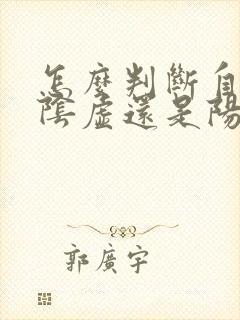 怎麼判斷自
陰虛還是陽
郭廣宇